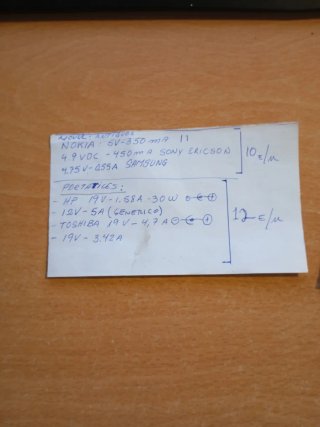 NOKIA: 6V-350 mA 11
4.9 VDC - 450 mA SONY ERICSON
4.75V-0.55A SAMSUNG
10 €/u
PORTATILES:
- HP 19V-1.58A-30W
- 12V-5A (GENERICO)
- TOSHIBA 19V-4,7A
- 19V-3.42A
12 €/u